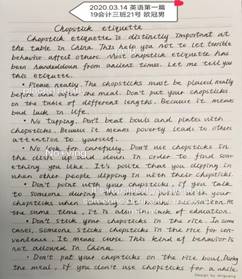 2020.03.14 英语第一篇
19会计三班21号 欧冠男
Chopstick etiquette
Chopstick etiquette is distinctly important at
the table in China. This help you not to let terrible
behavior affect others. Most chopstick etiquette has
been handeddown from ancient times. Let me tell you
this etiquette.
• Please neatly. The chopsticks must be placed neatly
before and after the meal. Don't put your chopsticks
on the table of different lengths. Because it means
bad luck in life.
• No Tapping. Don't beat bowls and plates with
chopsticks. Because it means poverty leads to others
attention to yourself.
• No for carefully. Don't use chopsticks in
the dish up and down in order to find som-
ething you like. It's polite that you dipping in
when other people dipping in with their chopsticks
• Don't point with your chopsticks, if you talk
to someone during the meal. point with your
chopsticks when
the same time. It is lack of education.
• Don't stick your chopsticks in the rice. In some
cases, someone sticks chopsticks in the rice for con-
venience. It means curse. This kind of behavior is
not allowed in China.
• Don't put your chopsticks on the rice bowl during
the meal. if you don't use chopsticks for a while.